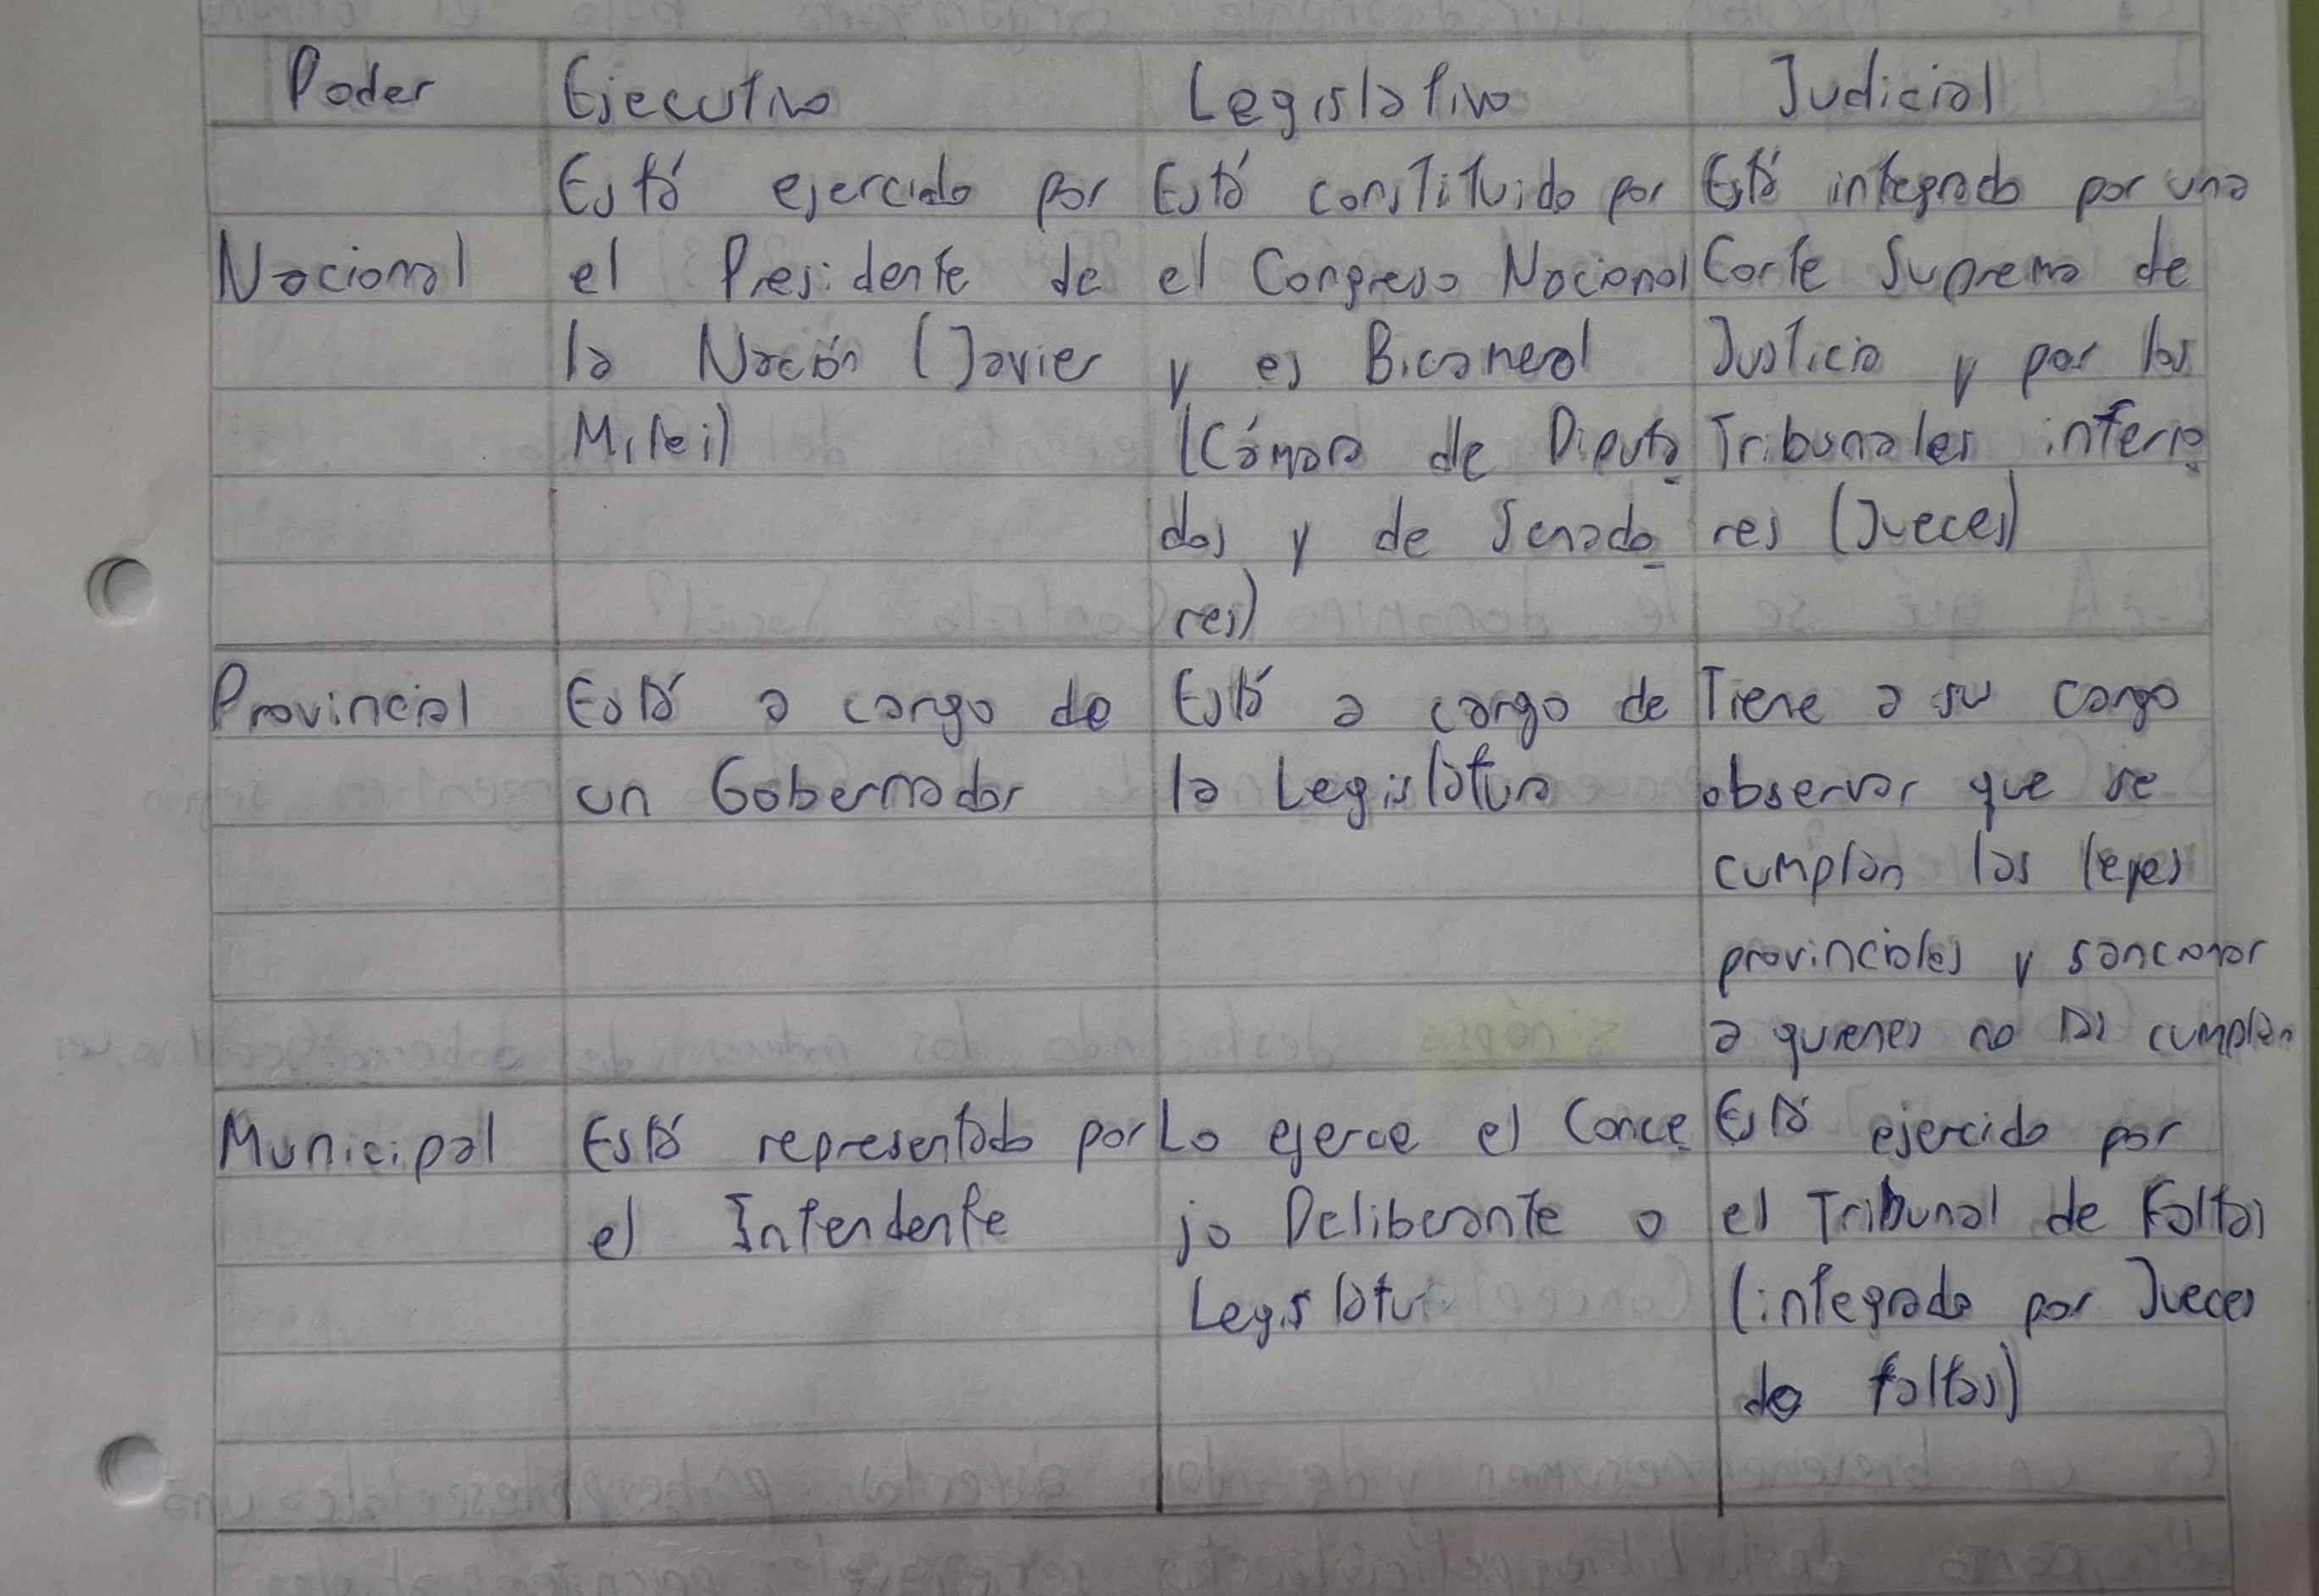 Poder Ejecutivo Legislativo Judicial
Está ejercido por Está constituido por Está integrado por una
Nacional el Presidente de el Congreso Nacional Corte Suprema de
la Nación (Javier y es Bicameral Justicia y por los
Milei) (Cámara de Diputa Tribunales inferio
dos y de Senado res (Jueces)
res)
Provincial Está a cargo de Está a cargo de Tiene a su cargo
un Gobernador la Legislatura observar que se
cumplan las leyes
provinciales y sancionar
a quienes no las cumplan
Municipal Está representado por Lo ejerce el Conce Está ejercido por
el Intendente jo Deliberante o el Tribunal de Faltas
Legislatu (integrado por Jueces
de faltas)